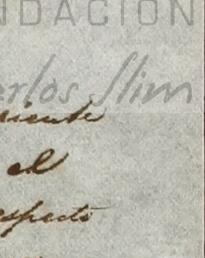 NDACIÓN
arlos Slim
el
especto